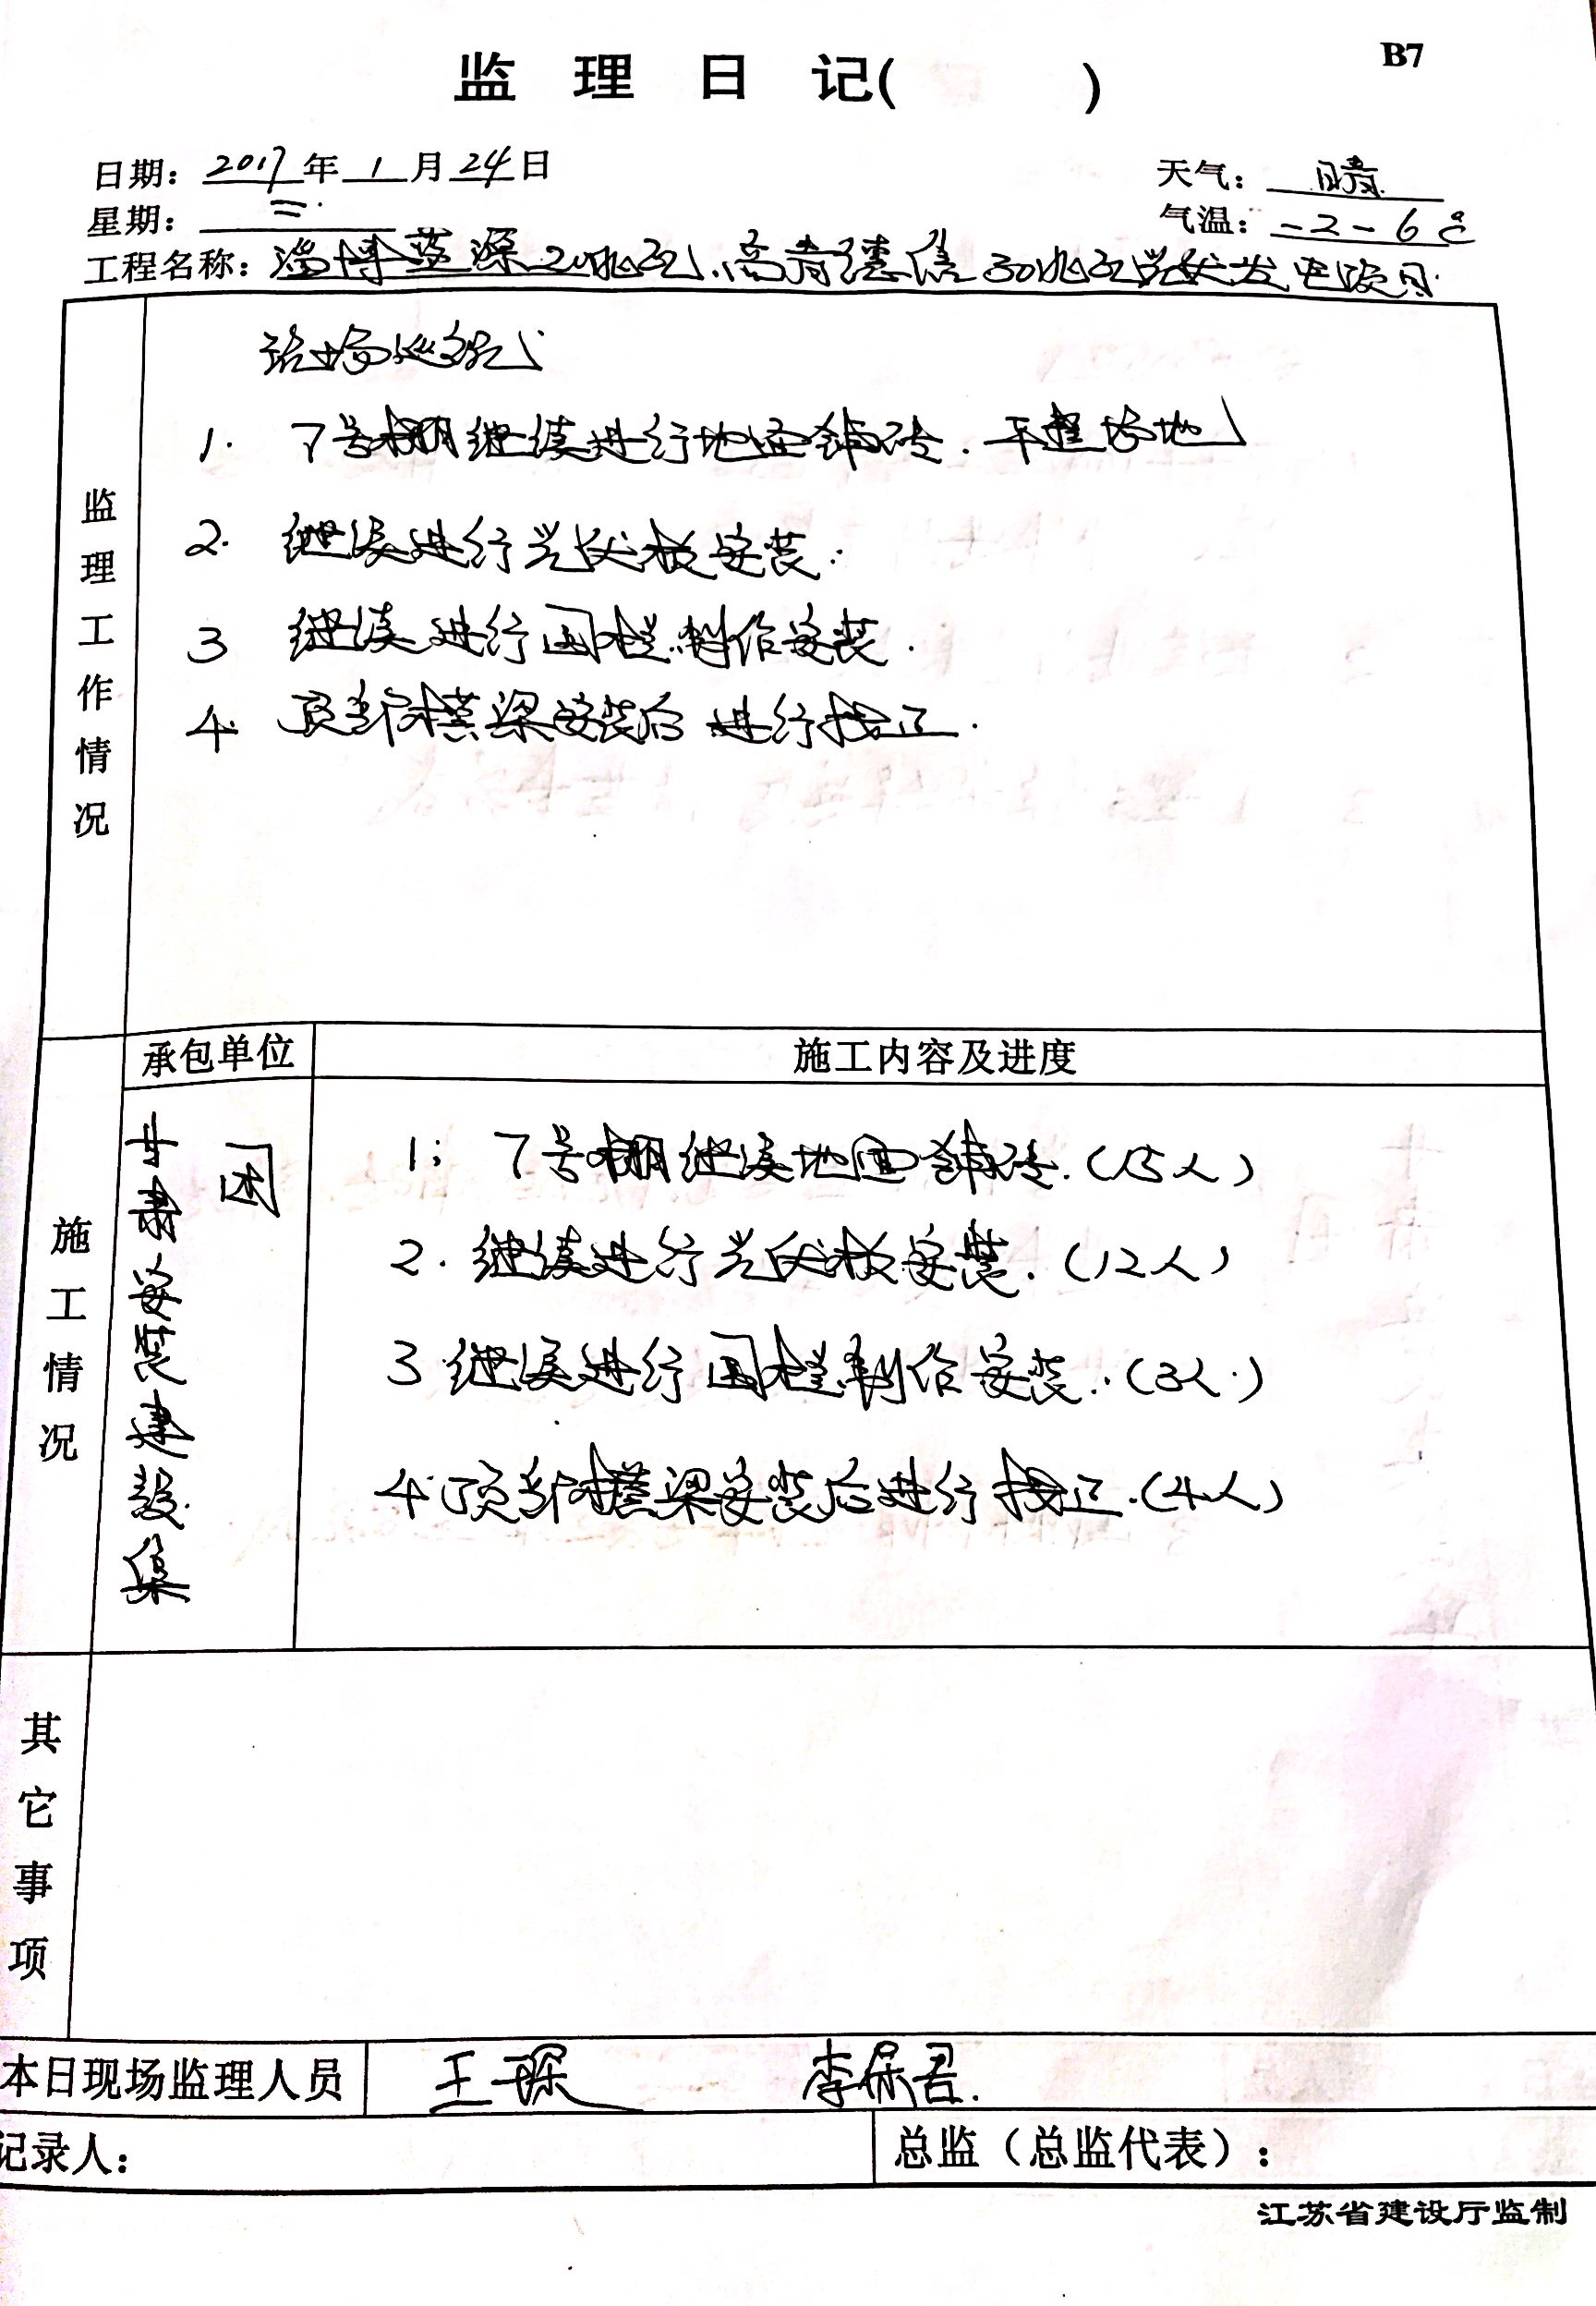 B7
监理日记( )
日期：2017年1月24日
天气：晴
星期：二.
气温：-2-6℃
工程名称：淄博蓝深20兆瓦、高青德信30兆瓦光伏发电项目.
监理工作情况
现场巡视
1. 7号棚继续进行地面铺砖.平整场地
2. 继续进行光伏板安装.
3 继续进行围栏.制作安装.
4. 顶新横梁安装后 进行找正.
承包单位
施工内容及进度
施工情况
甘肃安装建设集团
1; 7号棚继续地面铺砖.(15人)
2. 继续进行光伏板安装.(12人)
3 继续进行围栏制作安装.(3人.)
4.顶新横梁安装后进行找正.(4人)
其它事项
本日现场监理人员 王琛 李保君.
记录人：
总监（总监代表）：
江苏省建设厅监制